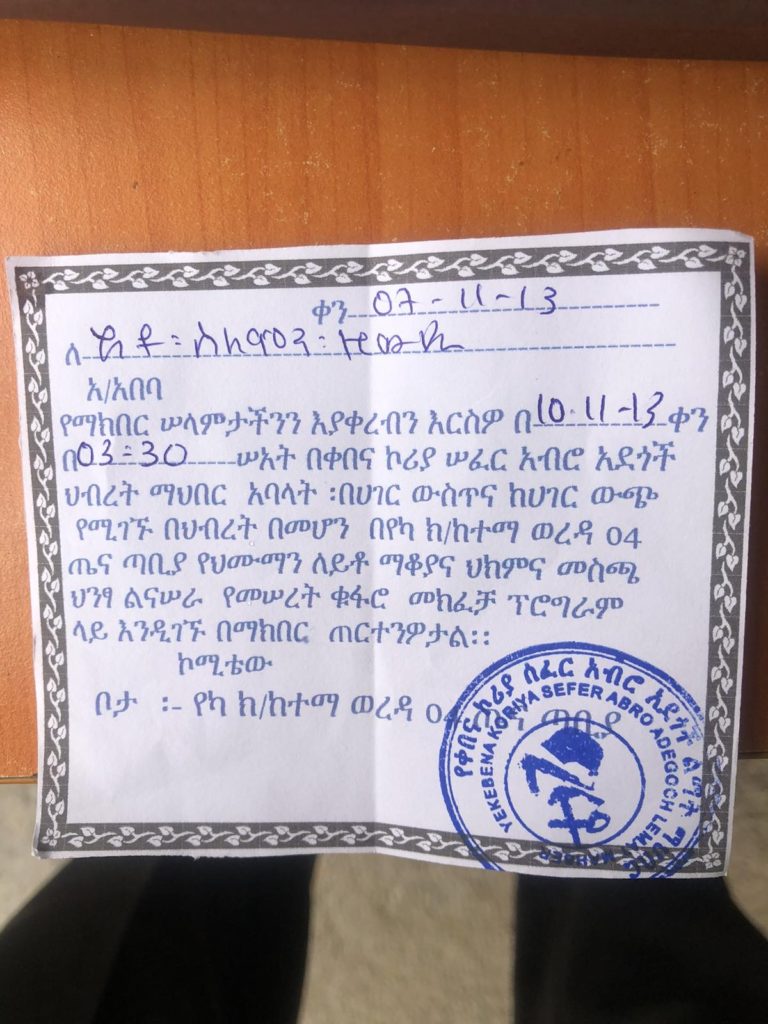 ቀን 07-11-13
ለ አቶ፡ ሰለሞን፡
አ/አበባ
የማክበር ሠላምታችንን እያቀረብን እርስዎ በ 10-11-13 ቀን
በ 03:30 ሠአት በቀበና ኮሪያ ሠፈር አብሮ አደጎች
ህብረት ማህበር አባላት ፡በሀገር ውስጥና ከሀገር ውጭ
የሚገኙ በህብረት በመሆን በየካ ክ/ከተማ ወረዳ 04
ጤና ጣቢያ የህሙማን ለይቶ ማቆያና ህክምና መስጫ
ህንፃ ልናሠራ የመሠረት ቁፋሮ መክፈቻ ፕሮግራም
ላይ እንዲገኙ በማክበር ጠርተንዎታል፡፡
ኮሚቴው
ቦታ ፡- የካ ክ/ከተማ ወረዳ 04 ጤና ጣቢያ
የቀበና ኮሪያ ሰፈር አብሮ አደጎች ልማት
YEKEBENA KORIYA SEFER ABRO ADEGOCH